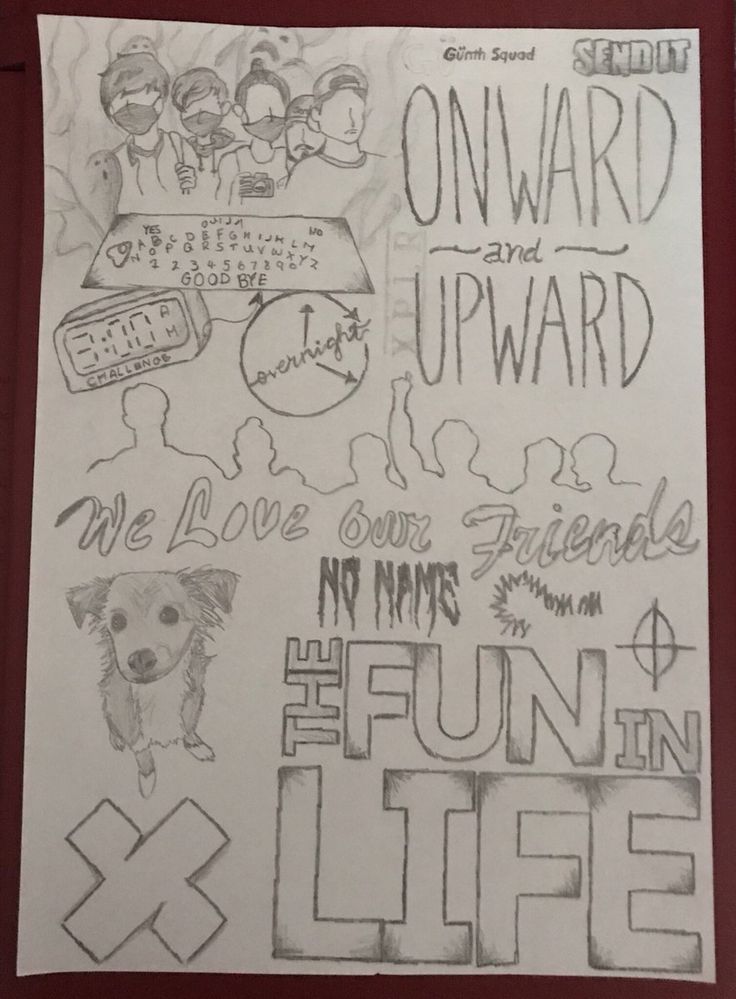 Günth Squad
SEND IT
ONWARD
and
UPWARD
XPLR
YES OUIJA NO
A B C D E F G H I J K L M
N O P Q R S T U V W X Y Z
1 2 3 4 5 6 7 8 9 0
GOOD BYE
3:00 AM
CHALLENGE
overnight
We Love our Friends
NO NAME
THE FUN IN
LIFE
X